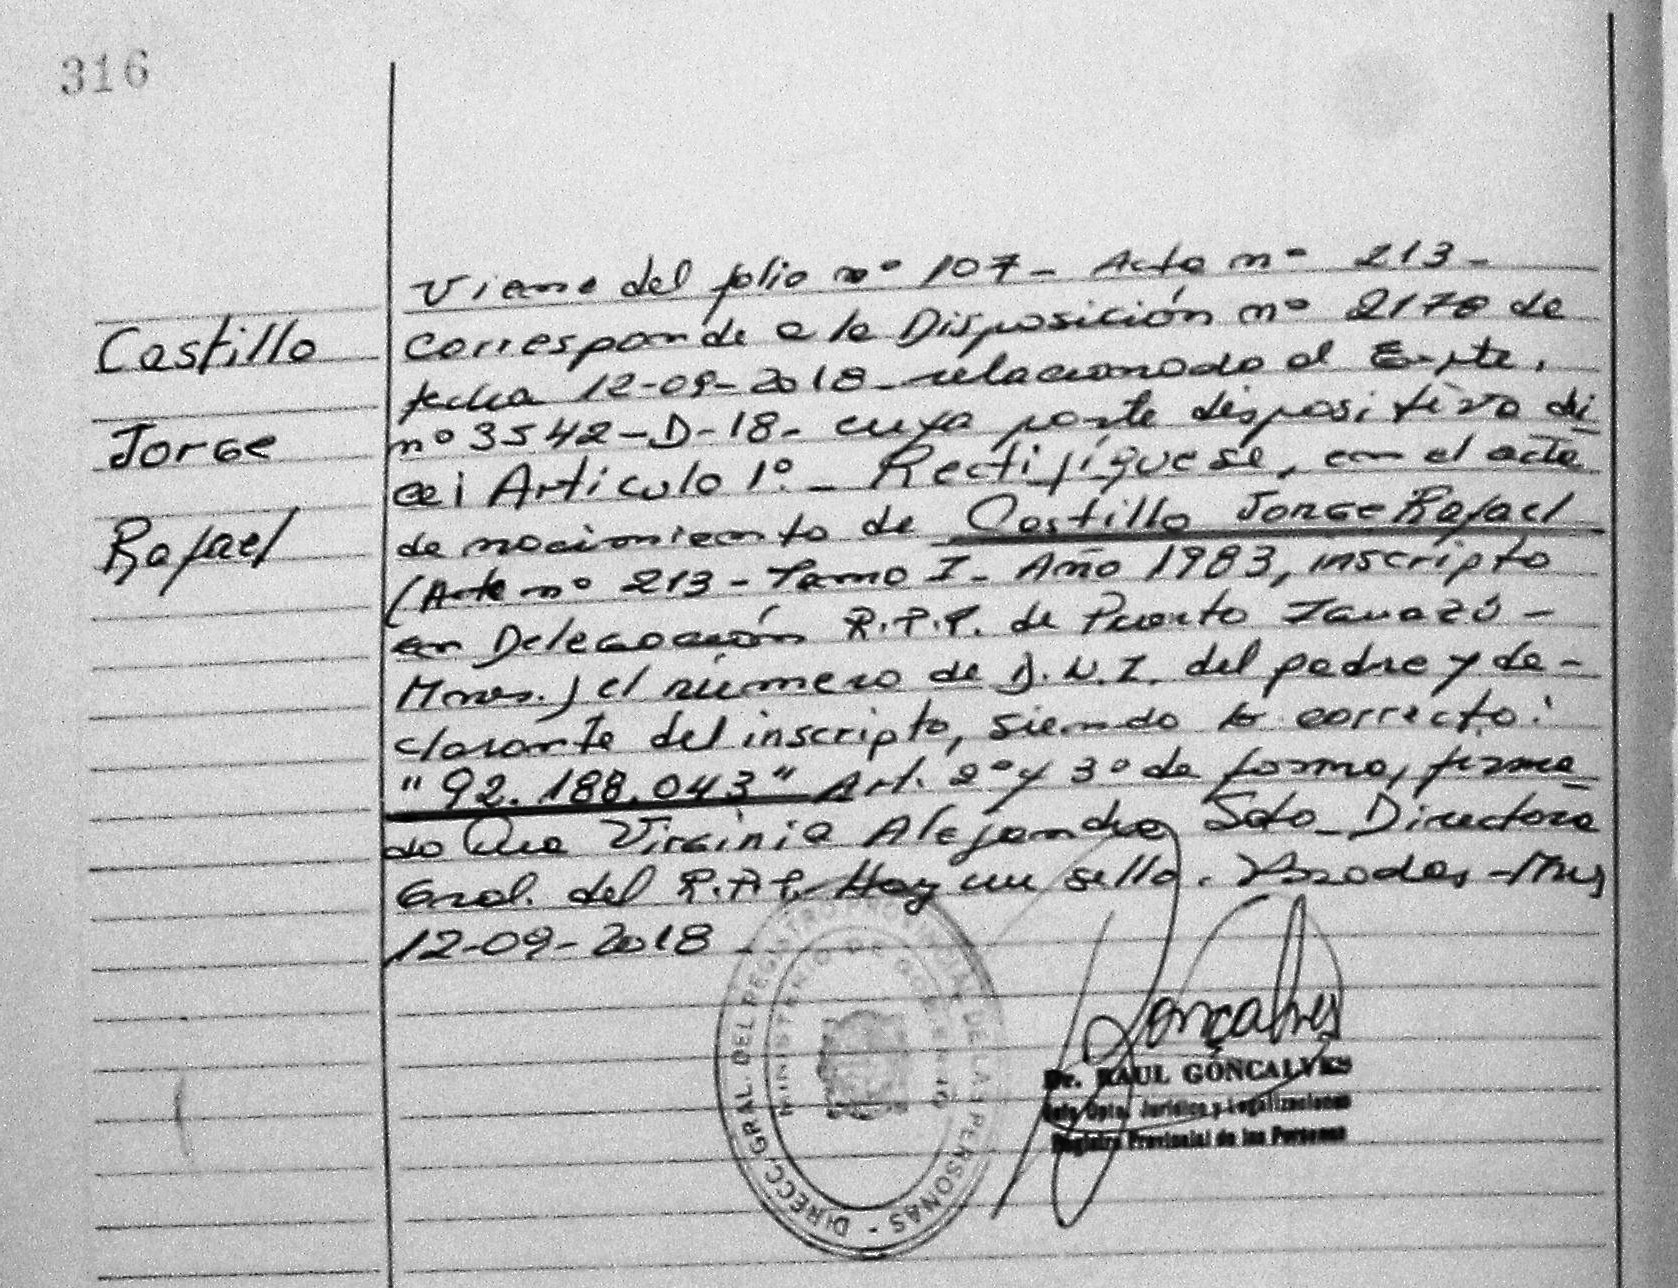 316
Castillo
Jorge
Rafael
Viene del folio nº 107 - Acta nº 213 -
Corresponde a la Disposición nº 2178 de
fecha 12-09-2018 - relacionado al Expte.
nº 3542-D-18 - cuya parte dispositiva di
ce: Artículo 1º - Rectifíquese, en el acta
de nacimiento de Castillo Jorge Rafael
(Acta nº 213 - Tomo I - Año 1983, inscripto
en Delegación R.P.P. de Puerto Iguazú -
Mnes.) el número de D.N.I. del padre y de-
clarante del inscripto, siendo lo correcto:
"92.188.043" Art. 2º y 3º de forma, firma
do Virginia Alejandra Soto - Directora
Gral. del R.P.P. Hay un sello. Posadas - Mnes
12-09-2018 -
DIRECC. GRAL. DEL REGISTRO PROVINCIAL DE LAS PERSONAS -
MINISTERIO DE GOBIERNO
Gonçalves
Dr. RAUL GONCALVES
Jefe Dpto. Jurídico y Legalizaciones
Registro Provincial de las Personas